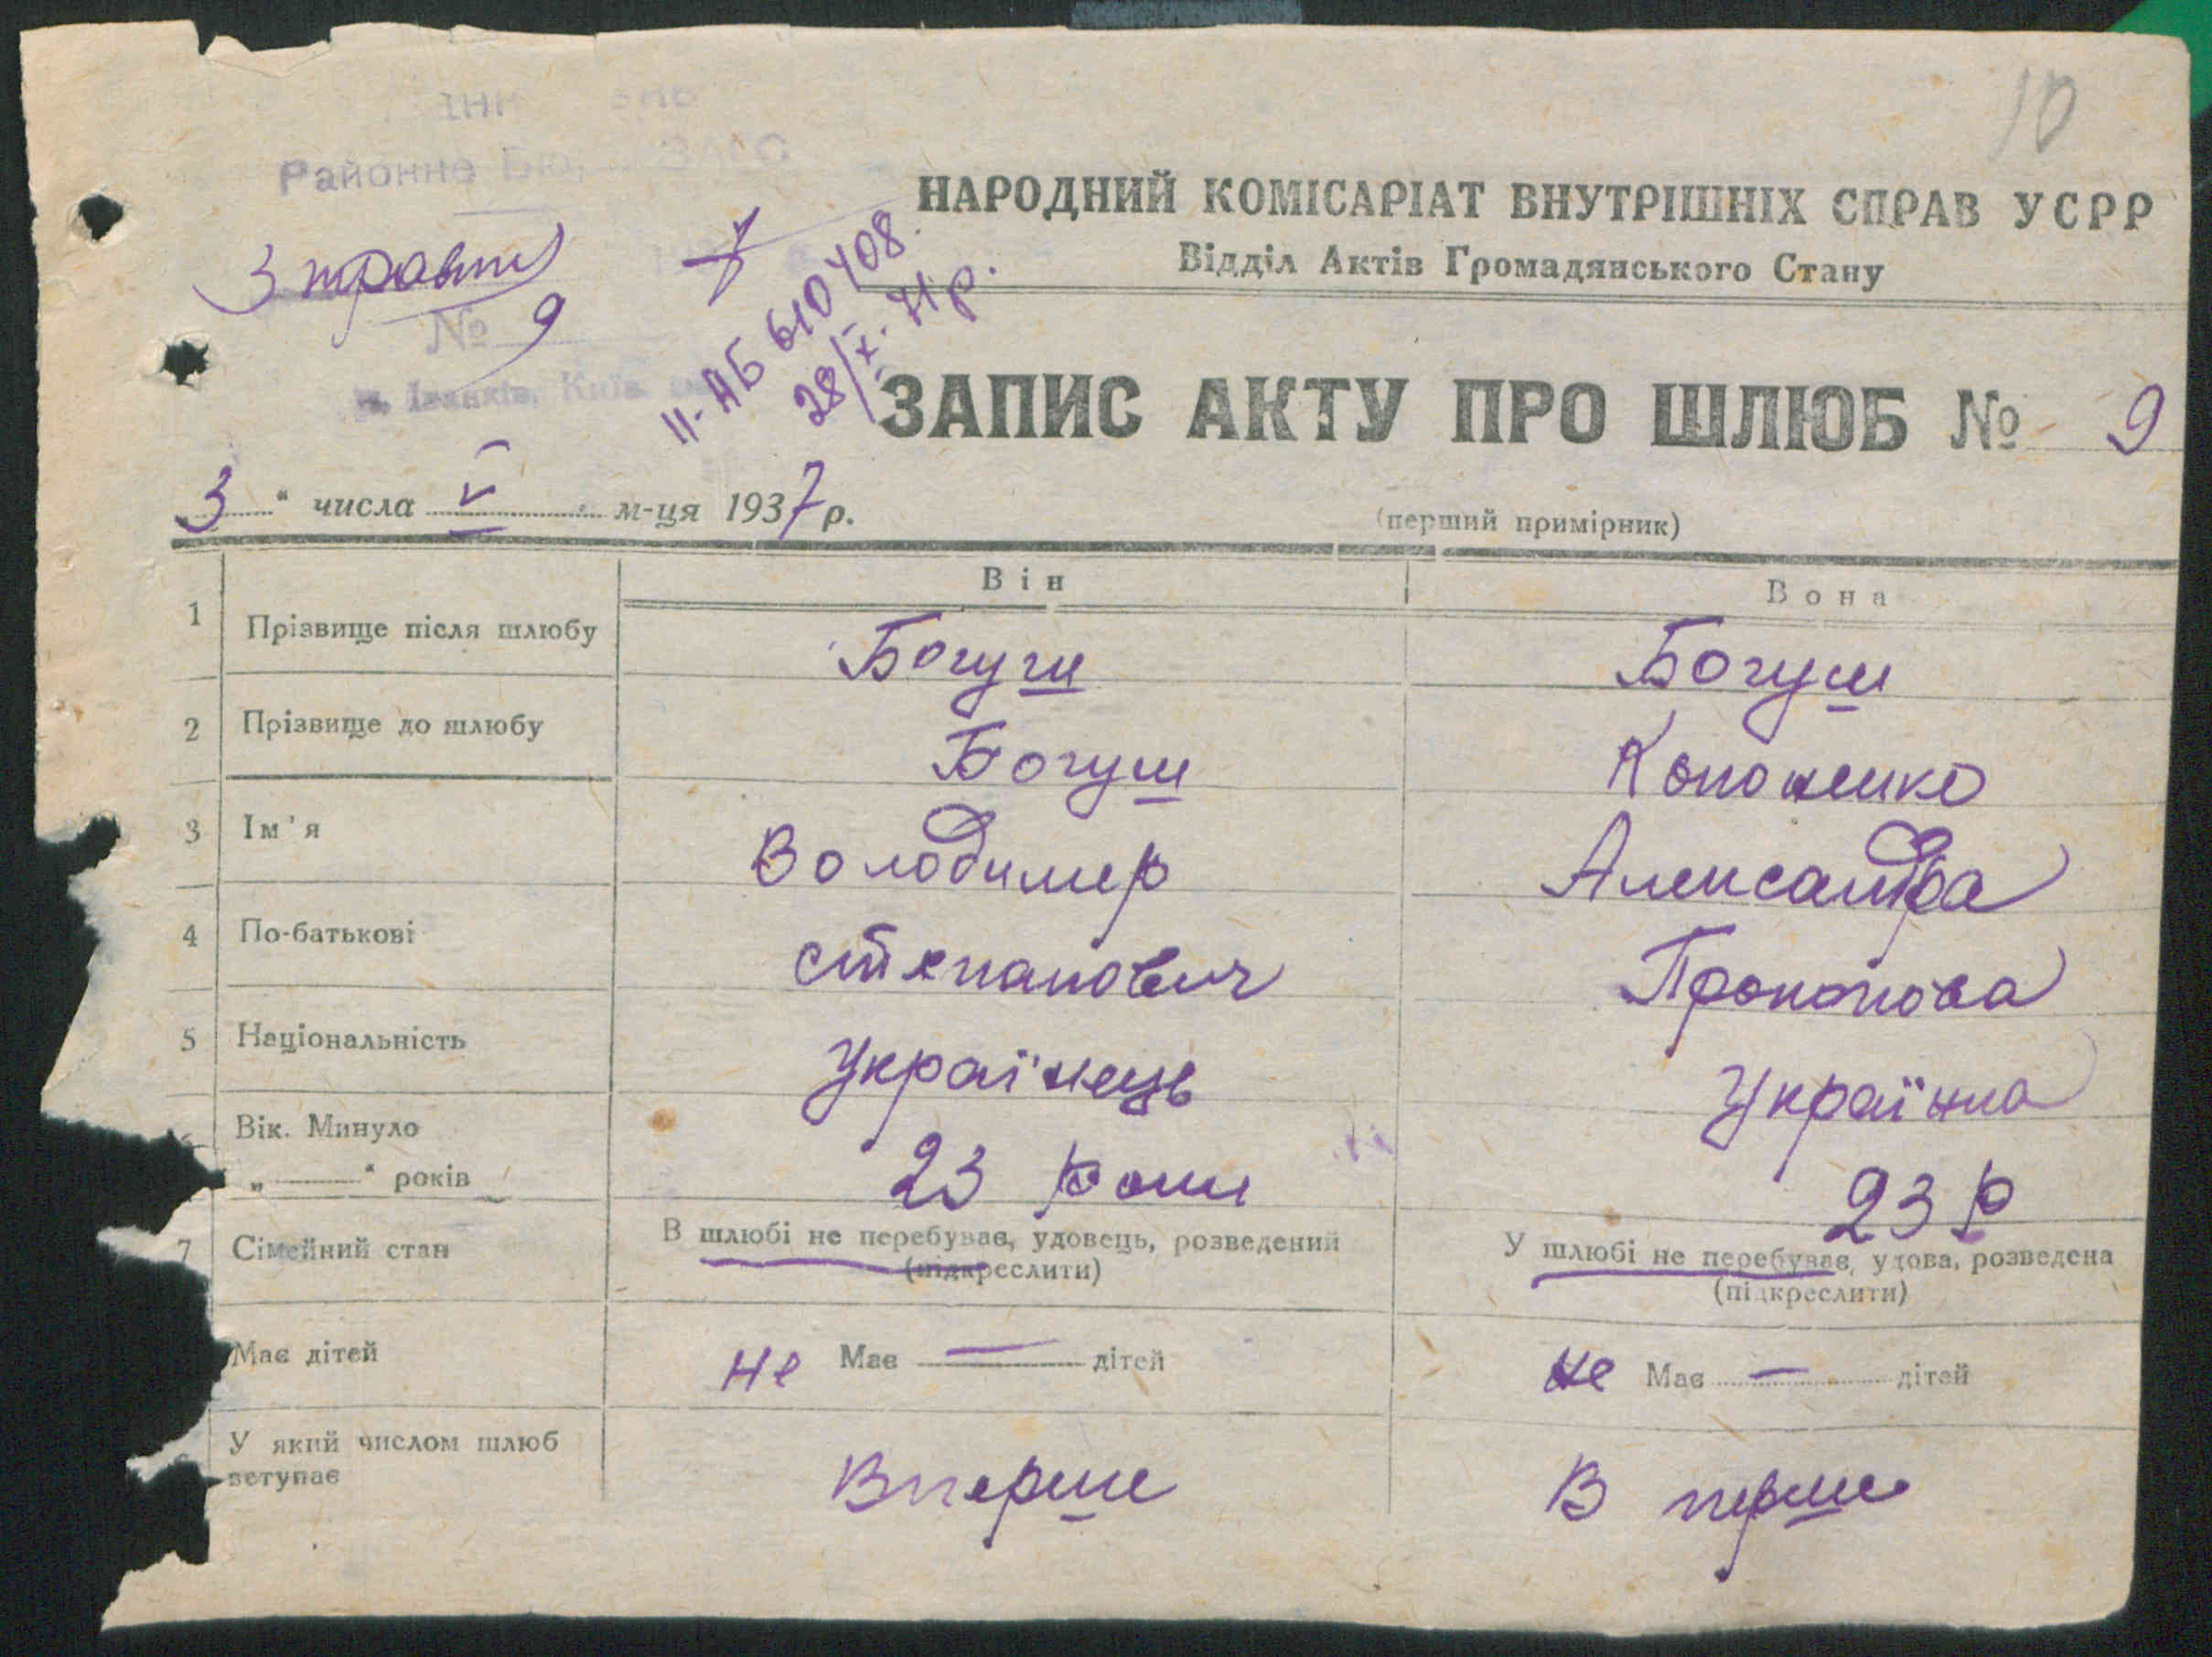 10
Районне
НАРОДНИЙ КОМІСАРІАТ ВНУТРІШНІХ СПРАВ УСРР
Відділ Актів Громадянського Стану
3 травня 7
№ 9
м. Іванків, Київ.
II-АБ 610408.
28/X. 71 р.
ЗАПИС АКТУ ПРО ШЛЮБ № 9
3 " числа V м-ця 1937 р.
(перший примірник)
Він Вона
1 Прізвище після шлюбу Богуш Богуш
2 Прізвище до шлюбу Богуш Кононенко
3 Ім'я Володимер Александра
4 По-батькові Степанович Прокопова
5 Національність Українець Українка
6 Вік. Минуло
„ " років 23 роки 23 р
7 Сімейний стан В шлюбі не перебуває, удовець, розведений У шлюбі не перебуває, удова, розведена
(підкреслити) (підкреслити)
Має дітей не Має — дітей не Має — дітей
У який числом шлюб
вступає Вперше В перше